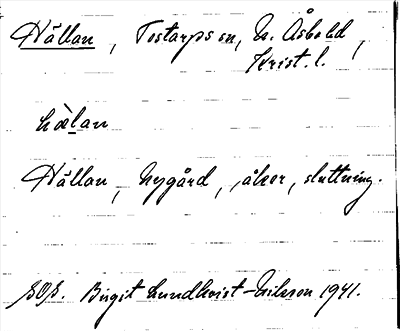 Hällan, Tostarps sn, N. Åsbo hd,
Krist. l.
hælan
Hällan, nygård, åker, sluttning.
SOS. Birgit Lundkvist-Nilsson 1941.